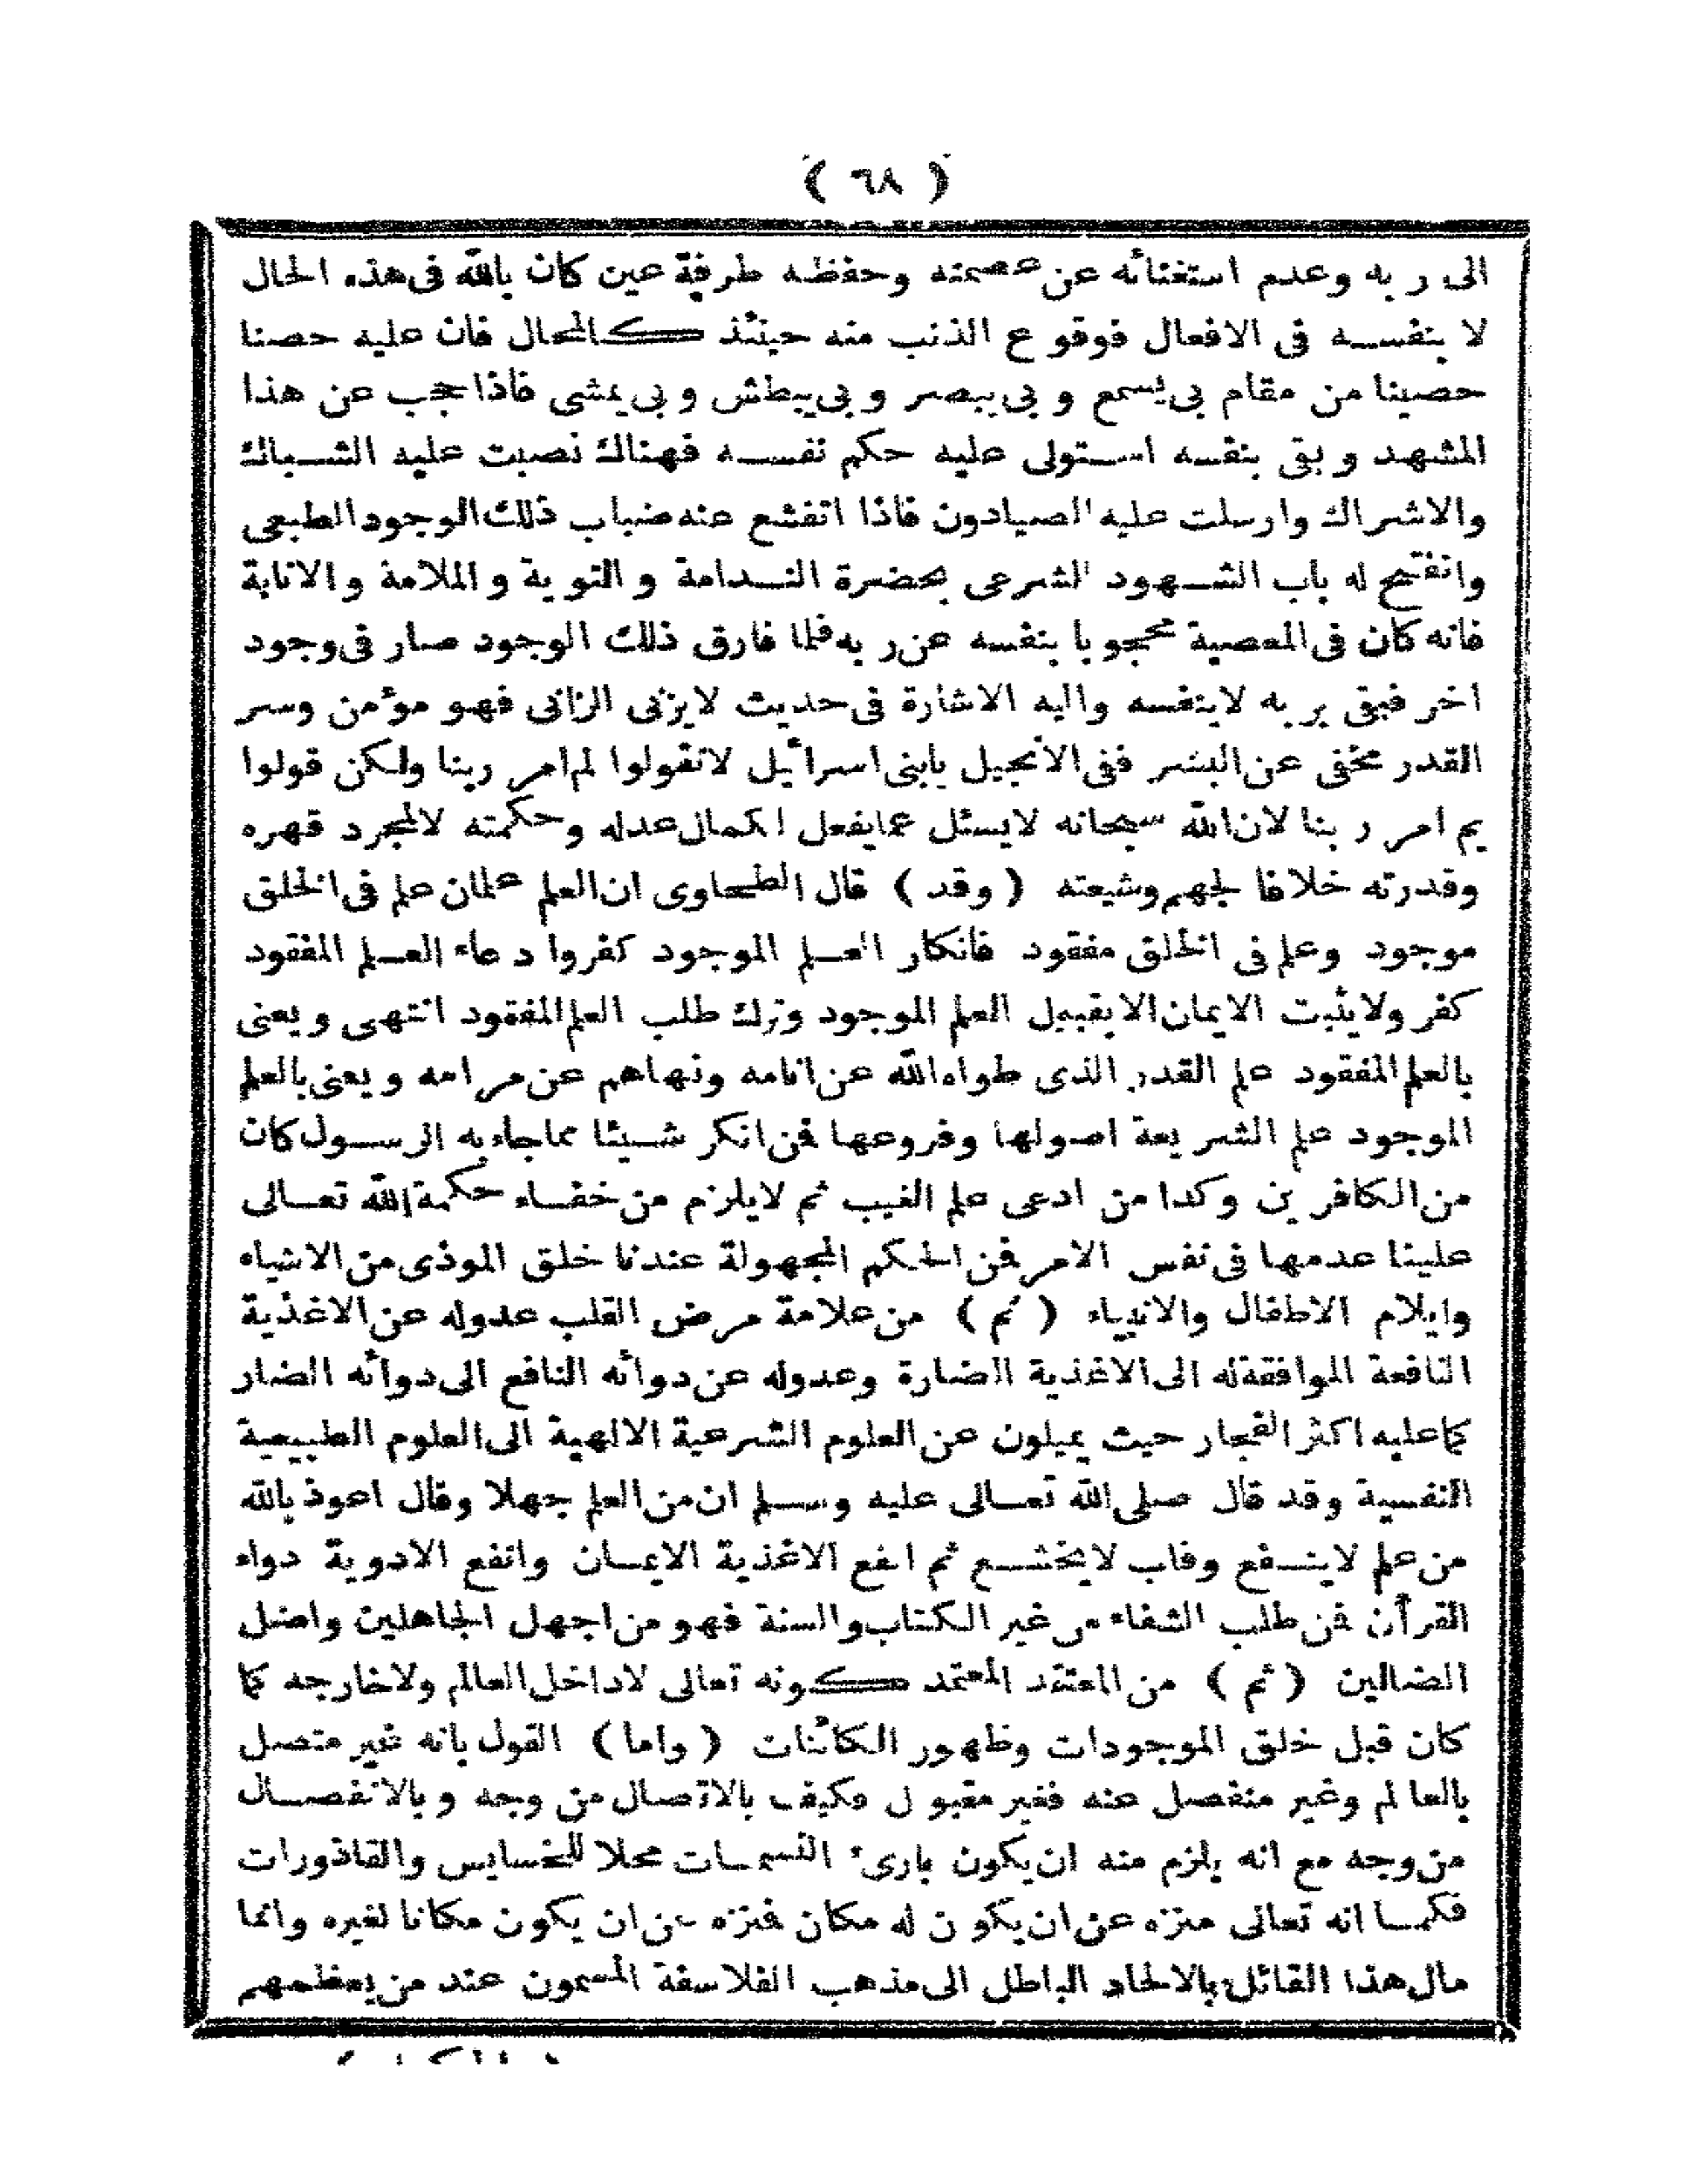 ( ٦٨ )
الى ربه وعدم استغنائه عن عصمته وحفظه طرفة عين كان بالله فى هذه الحال
لا بنفسه فى الافعال فوقوع الذنب منه حينئذ كالمحال فان عليه حصنا
حصينا من مقام بى يسمع و بى يبصر و بى يبطش و بى يمشى فاذا حجب عن هذا
المشهد و بقى بنفسه استولى عليه حكم نفسه فهناك نصبت عليه الشباك
والاشراك وارسلت عليه الصيادون فاذا انقشع عنه ضباب ذلك الوجود الطبعى
وانفتح له باب الشهود الشرعى بحضرة الندامة و التوبة و الملامة و الانابة
فانه كان فى المعصية محجوبا بنفسه عن ربه فلما فارق ذلك الوجود صار فى وجود
اخر فبقى بربه لا بنفسه واليه الاشارة فى حديث لا يزنى الزانى فهو مؤمن وسر
القدر مخفى عن البشر ففى الانجيل يابنى اسرائيل لا تقولوا لم امر ربنا ولكن قولوا
بم امر ربنا لان الله سبحانه لا يسئل عما يفعل لكمال عدله وحكمته لا لمجرد قهره
وقدرته خلافا لجهم وشيعته ( وقد ) قال الطحاوى ان العلم علمان علم فى الخلق
موجود وعلم فى الخلق مفقود فانكار العلم الموجود كفر وادعاء العلم المفقود
كفر ولا يثبت الايمان الا بقبول العلم الموجود وترك طلب العلم المفقود انتهى و يعنى
بالعلم المفقود علم القدر الذى طواه الله عن انامه ونهاهم عن مرامه و يعنى بالعلم
الموجود علم الشريعة اصولها وفروعها فمن انكر شيئا مما جاء به الرسول كان
من الكافرين وكذا من ادعى علم الغيب ثم لا يلزم من خفاء حكمة الله تعالى
علينا عدمها فى نفس الامر فمن الحكم المجهولة عندنا خلق الموذى من الاشياء
وايلام الاطفال والانبياء ( ثم ) من علامة مرض القلب عدوله عن الاغذية
النافعة الموافقة له الى الاغذية الضارة وعدوله عن دوائه النافع الى دوائه الضار
كما عليه اكثر الفجار حيث يميلون عن العلوم الشرعية الالهية الى العلوم الطبيعية
النفسية وقد قال صلى الله تعالى عليه وسلم ان من العلم جهلا وقال اعوذ بالله
من علم لا ينفع وقلب لا يخشع ثم انفع الاغذية الايمان وانفع الادوية دواء
القرآن فمن طلب الشفاء من غير الكتاب والسنة فهو من اجهل الجاهلين واضل
الضالين ( ثم ) من المعتقد المعتمد كونه تعالى لا داخل العالم ولا خارجه كما
كان قبل خلق الموجودات وظهور الكائنات ( واما ) القول بانه غير متصل
بالعالم وغير منفصل عنه فغير مقبول فكيف بالاتصال من وجه و بالانفصال
من وجه مع انه يلزم منه ان يكون بارىء النسمات محلا للخسايس والقاذورات
فكما انه تعالى منزه عن ان يكون له مكان فمنزه عن ان يكون مكانا لغيره وانما
مال هذا القائل بالالحاد الباطل الى مذهب الفلاسفة المسمون عند من يعظمهم